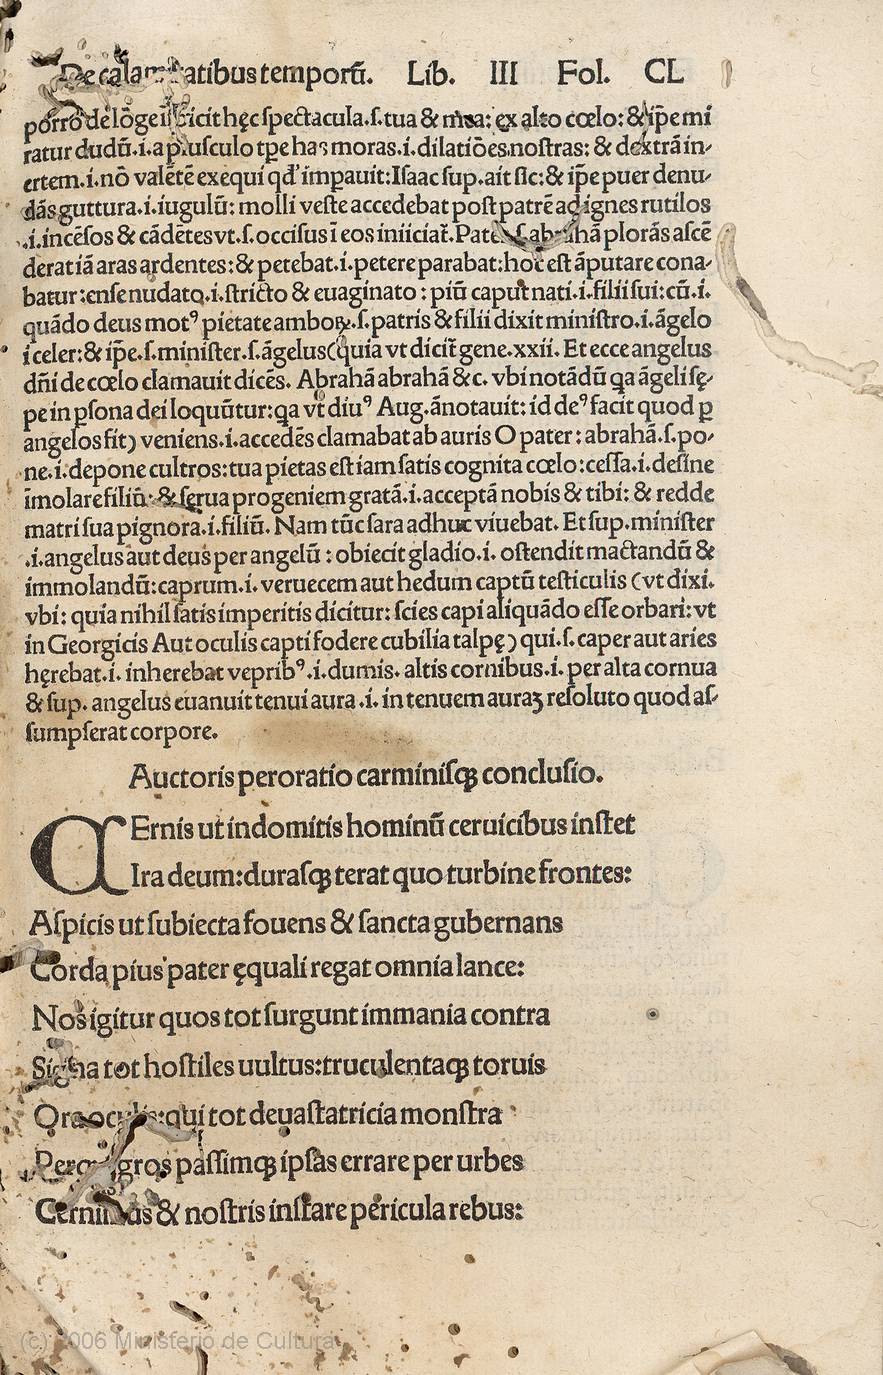 De calamitatibus temporū. Lib. III Fol. CL
porro de lōge iſpicit hęc ſpectacula.ſ.tua & mea: ex alto cœlo: & ip̄e mi
ratur dudū.i.a pluſculo tp̄e has moras.i.dilatiōes noſtras: & dextrā in-
ertem.i.nō valētē exequi qđ impauit: Iſaac ſup.ait ſic: & ip̄e puer denu-
dās guttura.i.iugulū: molli veſte accedebat poſt patrē ad ignes rutilos
.i.incēſos & cādētes vt.ſ.occiſus ī eos iniiciat̄. Pater.ſ.abrahā plorās aſcē
derat iā aras ardentes: & petebat.i.petere parabat: hoc eſt āputare cona-
batur: enſe nudato.i.ſtricto & euaginato: piū caput nati.i.filii ſui: cū.i.
quādo deus motꝰ pietate amboꝝ.ſ.patris & filii dixit miniſtro.i.āgelo
i celer: & ip̄e.ſ.miniſter.ſ.āgelus (quia vt dicit̄ gene.xxii. Et ecce angelus
dn̄i de cœlo clamauit dicēs. Abrahā abrahā &c. vbi notādū qa āgeli ſę-
pe in ꝑſona dei loquūtur: qa vt diuꝰ Aug. ānotauit: id deꝰ facit quod ꝑ
angelos fit) veniens.i.accedēs clamabat ab auris O pater: abrahā.ſ.po-
ne.i.depone cultros: tua pietas eſt iam ſatis cognita cœlo: ceſſa.i.deſine
īmolare filiū: & ſerua progeniem gratā.i.acceptā nobis & tibi: & redde
matri ſua pignora.i.filiū. Nam tūc ſara adhuc viuebat. Et ſup.miniſter
.i.angelus aut deus per angelū: obiecit gladio.i. oſtendit mactandū &
immolandū: caprum.i. veruecem aut hedum captū teſticulis (vt dixi.
vbi: quia nihil ſatis imperitis dicitur: ſcies capi aliquādo eſſe orbari: vt
in Georgicis Aut oculis capti fodere cubilia talpę) qui.ſ.caper aut aries
hęrebat.i. inherebat vepribꝰ.i.dumis. altis cornibus.i. per alta cornua
& ſup. angelus euanuit tenui aura.i. in tenuem auraꝫ reſoluto quod aſ-
ſumpſerat corpore.
Auctoris peroratio carminiſqꝫ concluſio.
CErnis ut indomitis hominū ceruicibus inſtet
Ira deum: duraſqꝫ terat quo turbine frontes:
Aſpicis ut ſubiecta fouens & ſancta gubernans
Corda pius pater ęquali regat omnia lance:
Nos igitur quos tot ſurgunt immania contra
Signa tot hoſtiles uultus: truculentaqꝫ toruis
Ora oculis: qui tot deuaſtatricia monſtra
Perque agros paſſimqꝫ ipſas errare per urbes
Cernimus & noſtris inſtare pericula rebus:
(c) 2006 Ministerio de Cultura